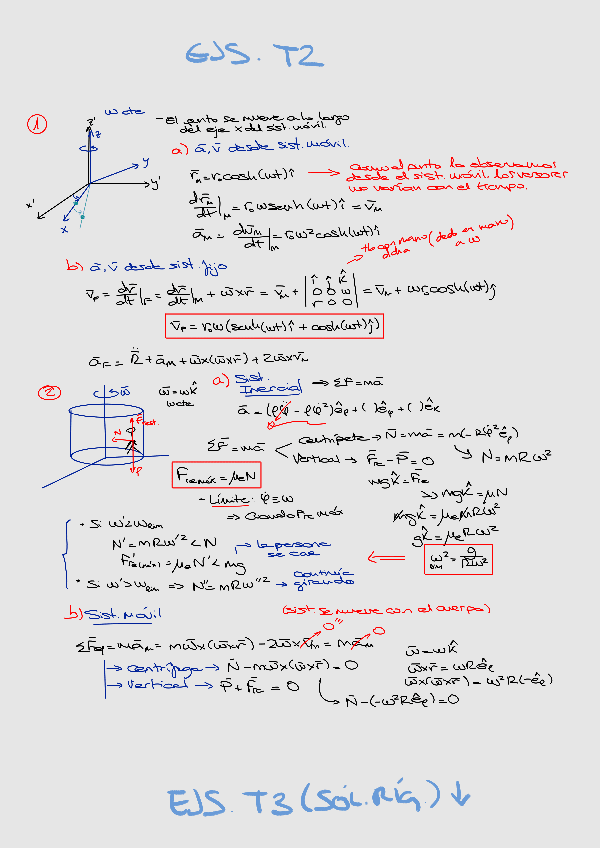 EJS. T2
1
ω cte
z'
z
y
y'
x'
x
- El punto se mueve a lo largo
del eje x del sist. móvil.
a) ā, v̄ desde sist. móvil.
r̄ₘ = r₀cosh(ωt)î → Como el punto lo observamos
desde el sist. móvil, los versores
no varían con el tiempo.
dr̄ₘ/dt|ₘ = r₀ωsenh(ωt)î = v̄ₘ
āₘ = dv̄ₘ/dt|ₘ = r₀ω²cosh(ωt)î
(dado en mano)
a ω
b) ā, v̄ desde sist. fijo
v̄_F = dr̄/dt|_F = dr̄/dt|_M + ω̄×r̄ = v̄ₘ + |î ĵ k̂; 0 0 ω; r 0 0| = v̄ₘ + ωr₀cosh(ωt)ĵ
v̄_F = r₀ω(senh(ωt)î + cosh(ωt)ĵ)
ā_F = R̈ + āₘ + ω̄×(ω̄×r̄) + 2ω̄×v̄ₘ
2
ω̄
ω̄ = ωk̂
ω cte
N
P
a) Sist.
Inercial ⇒ ΣF = mā
ā = (ρ̈ - ρφ̇²)ê_ρ + ( )ê_φ + ( )ê_k
ΣF̄ = mā
Centrípeta → N̄ = mā = m(-Rφ̇² ê_ρ)
↘ N = mRω²
Vertical → F̄_re - P̄ = 0
F_re máx = μₑN
mgk̂ = F̄_re
↘ mgk̂ = μN
- Límite: φ̇ = ω
⇒ Cuando F_re máx
mgk̂ = μₑmRω²
gk̂ = μₑRω²
• Si ω' < ω_lím
N' = mRω'² < N
F're(máx) = μₑN' < mg
→ la persona
se cae
• Si ω' > ω_lím ⇒ N'' = mRω''² → Continúa
girando
b) Sist. Móvil (sist. se mueve con el cuerpo)
ΣF̄_eq = māₘ = mω̄×(ω̄×r̄) - 2ω̄×v̄ₘ = māₘ
0
0
→ centrífuga → N̄ - mω̄×(ω̄×r̄) = 0
→ Vertical → P̄ + F̄_re = 0
↳ N̄ - (-ω²Rê_ρ) = 0
ω̄ = ωk̂
ω̄×r̄ = ωRê_φ
ω̄×(ω̄×r̄) = ω²R(-ê_ρ)
EJS. T3 (Sól. Ríg.) ↓